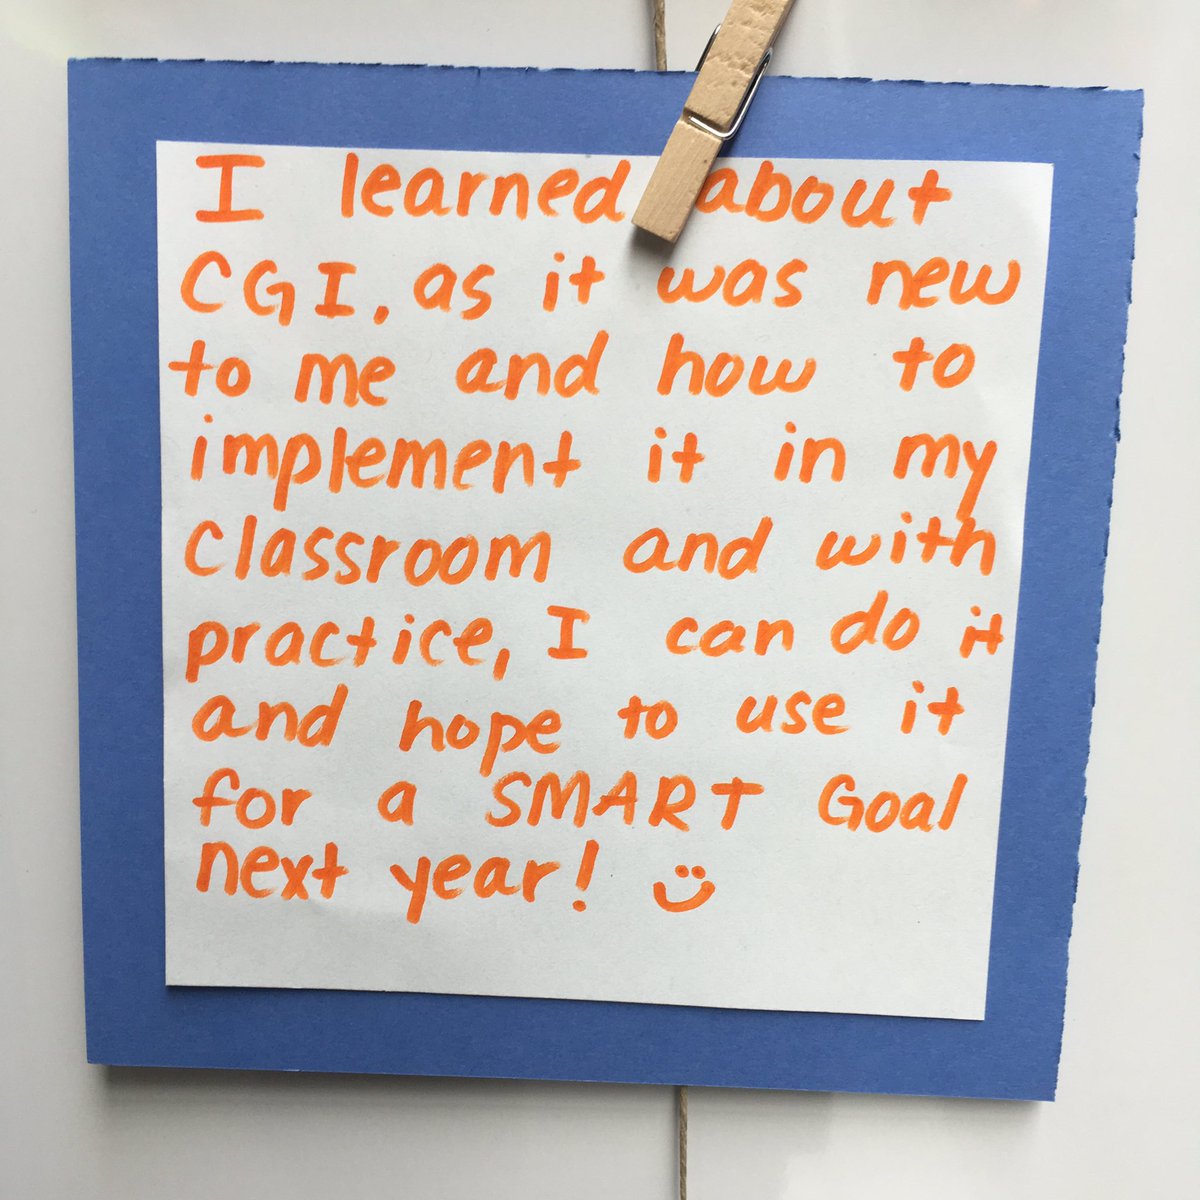 I learned about
CGI, as it was new
to me and how to
implement it in my
classroom and with
practice, I can do it
and hope to use it
for a SMART Goal
next year!